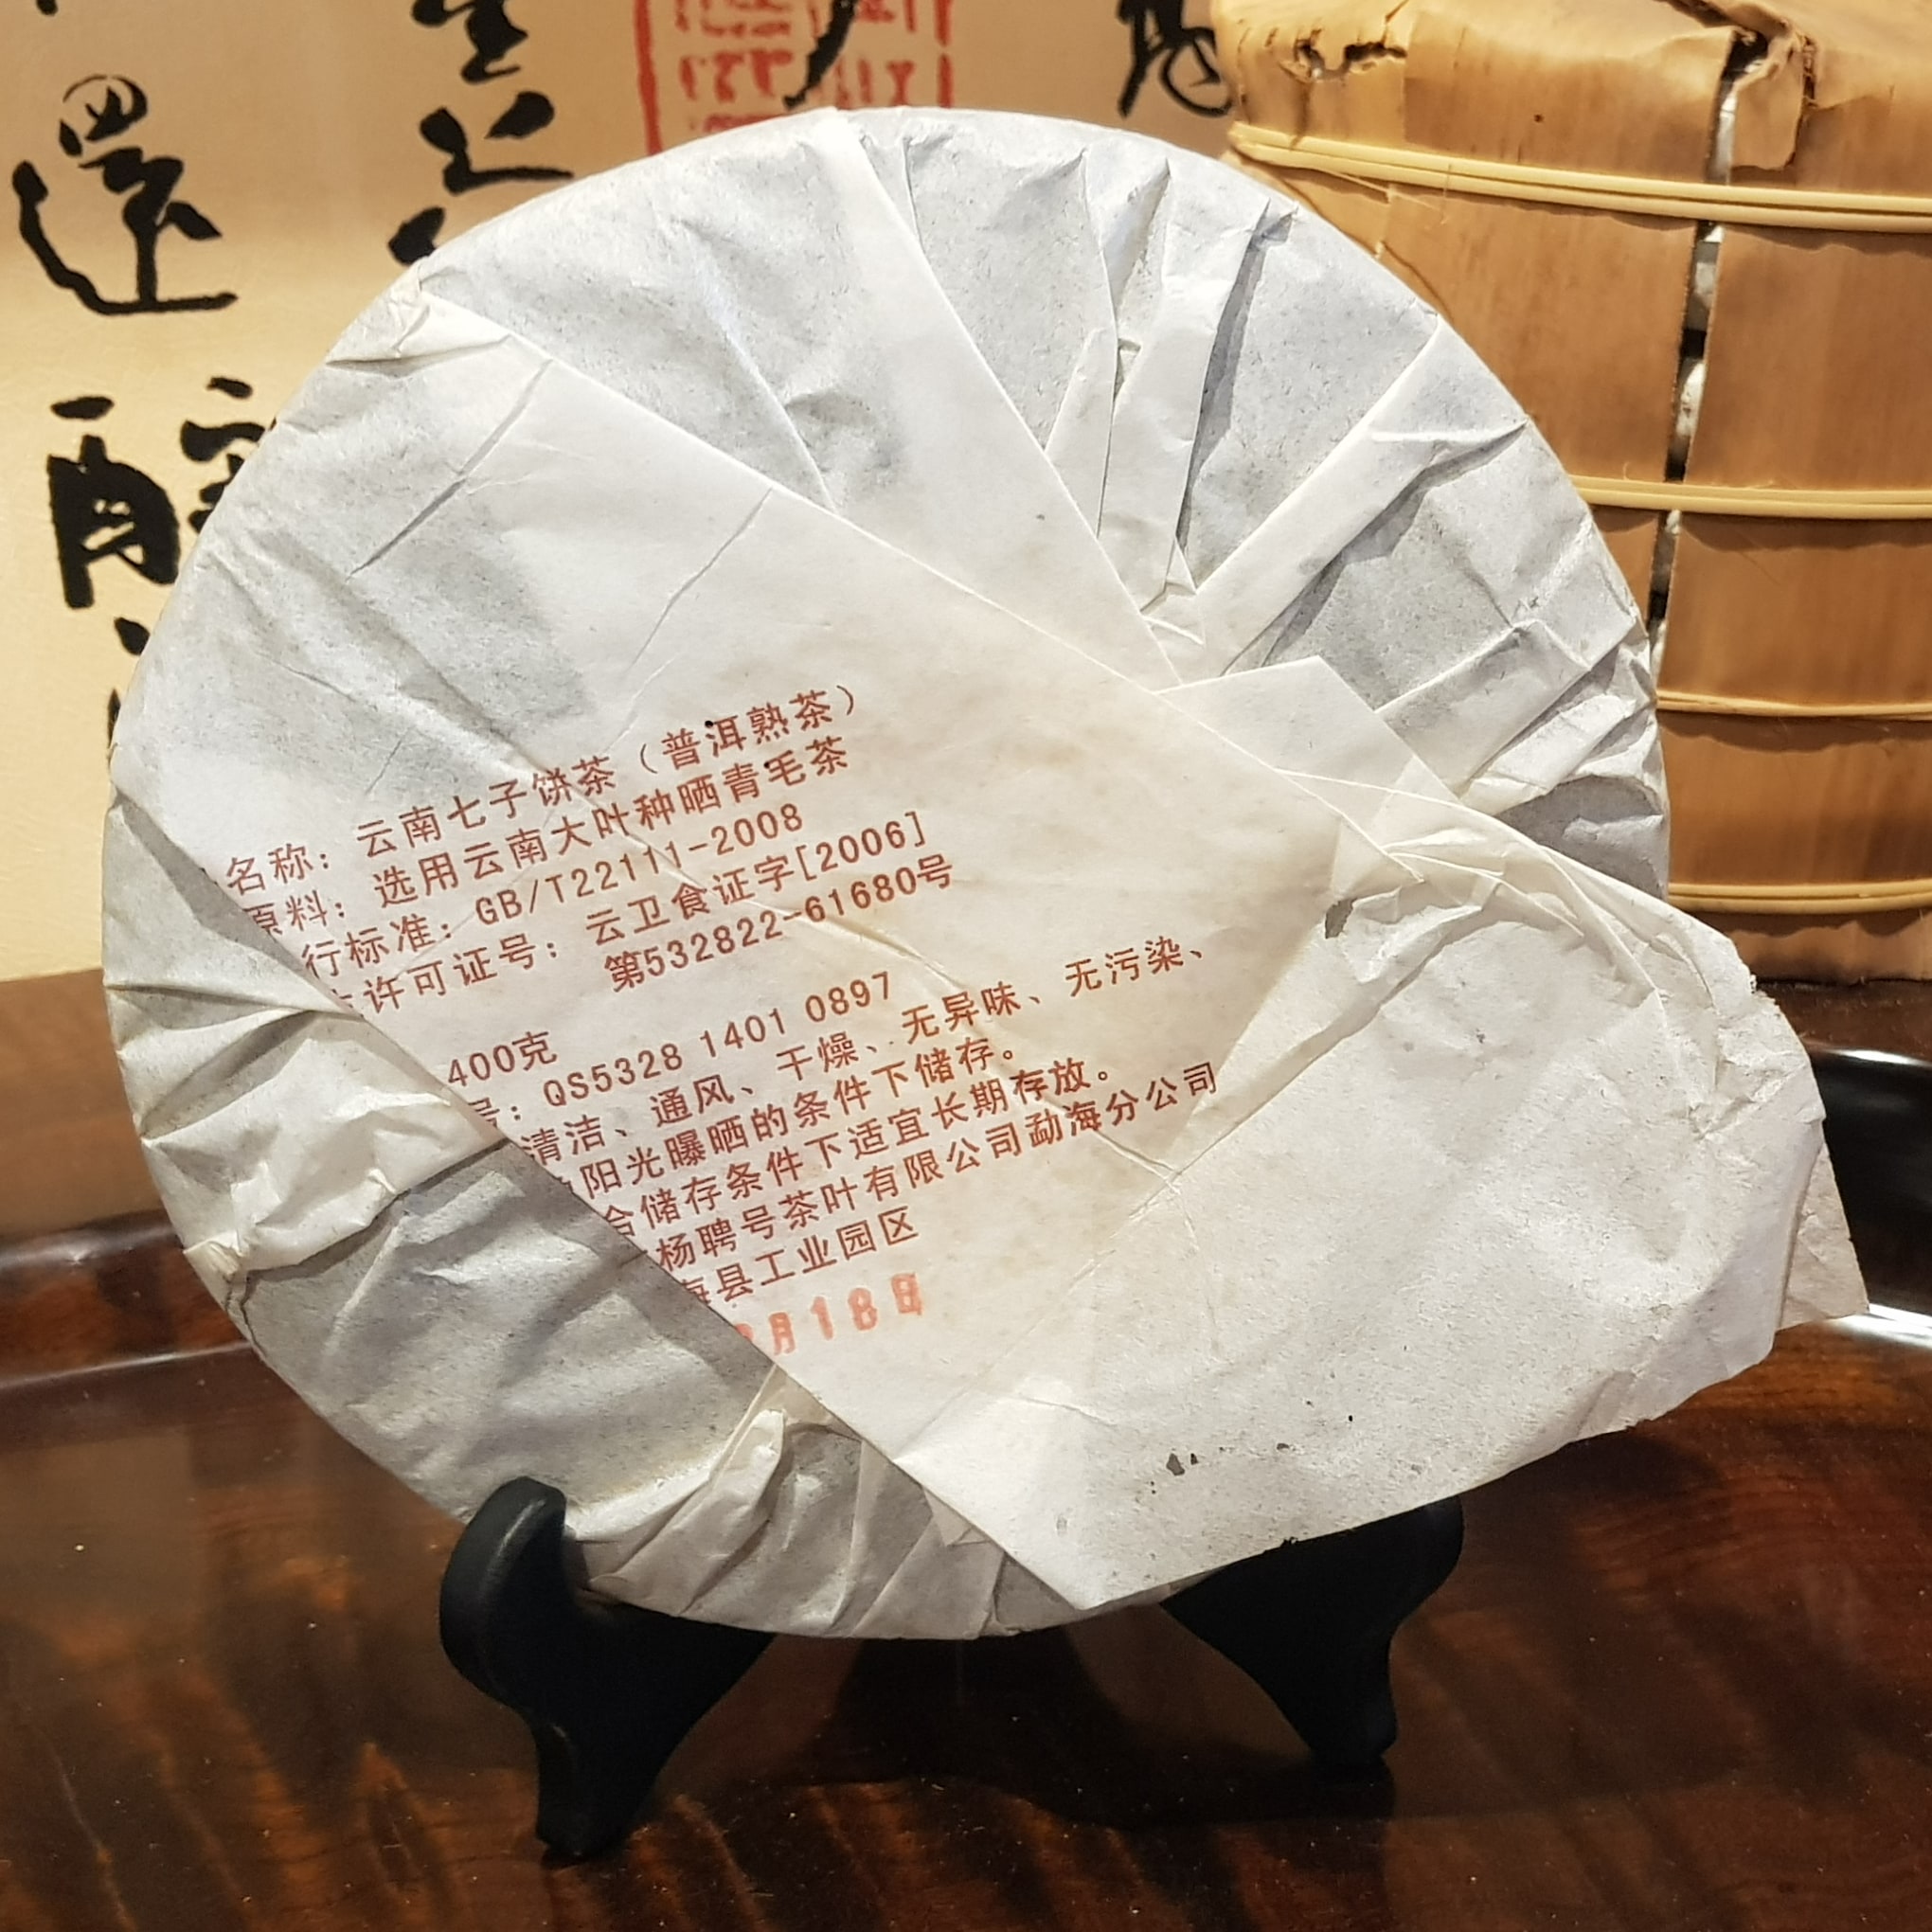 還
名称：云南七子饼茶（普洱熟茶）
原料：选用云南大叶种晒青毛茶
行标准：GB/T22111-2008
许可证号：云卫食证字[2006]
第532822-61680号
400克
号：QS5328 1401 0897
清洁、通风、干燥、无异味、无污染、
阳光曝晒的条件下储存。
合储存条件下适宜长期存放。
杨聘号茶叶有限公司勐海分公司
海县工业园区
月18日